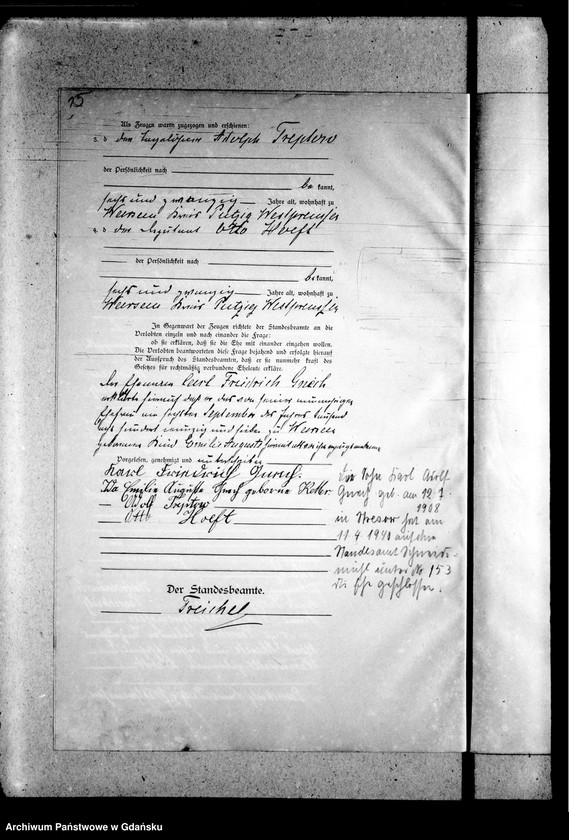 15
Als Zeugen waren zugezogen und erschienen:
3. der Adolph Treptow
der Persönlichkeit nach
bekannt,
sechs und zwanzig Jahre alt, wohnhaft zu
Kreis Putzig Westpreußen
4. der Otto Hoeft
der Persönlichkeit nach
bekannt,
sechs und zwanzig Jahre alt, wohnhaft zu
Kreis Putzig Westpreußen
In Gegenwart der Zeugen richtete der Standesbeamte an die
Verlobten einzeln und nach einander die Frage:
ob sie erklären, daß sie die Ehe mit einander eingehen wollen.
Die Verlobten beantworteten diese Frage bejahend und erfolgte hierauf
der Ausspruch des Standesbeamten, daß er sie nunmehr kraft des
Gesetzes für rechtmäßig verbundene Eheleute erkläre.
Der Ehemann Carl Friedrich
erklärte hierauf daß er das von seiner nunmehrigen
Ehefrau am sechsten September des Jahres tausend
acht hundert neunzig und sieben zu
geborene Kind Emilie Auguste
Vorgelesen, genehmigt und unterschrieben
Karl Friedrich
Ida Emilie Auguste geborene
Adolf Treptow
Otto Hoeft
Der Sohn Karl Adolf
geb. am 12.7.
1908
in hat am
11.4.1941 auf dem
Standesamt Schneide-
mühl unter Nr 153
die Ehe geschlossen.
Der Standesbeamte.
Treichel
Archiwum Państwowe w Gdańsku